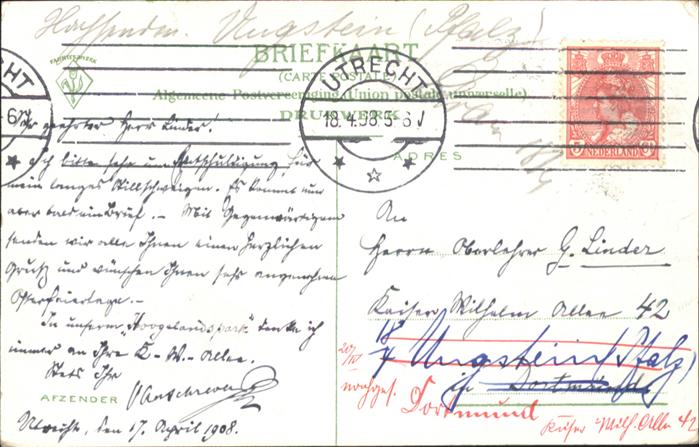 Ungstein (Pfalz)
BRIEFKAART
(CARTE POSTALE)
Algemeene Postvereeniging (Union postale universelle)
DRUKWERK
UTRECHT
18.4.08.5-6
5 NEDERLAND 5
ADRES
geehrter Herr Linder!
Ich bitte sehr um Entschuldigung für
mein langes Stillschweigen. Es kommt nun
aber bald ein Brief. – Mit Gegenwärtigem
senden wir alle Ihnen einen herzlichen
Gruß und wünschen Ihnen sehr angenehme
Osterfeiertage. –
In unserm "Hoogelandspark" denke ich
immer an Ihre K.-W.-Allee.
Stets Ihr
AFZENDER
Utrecht, den 17. April 1908.
An
Herrn Oberlehrer G. Linder
Kaiser Wilhelm Allee 42
Ungstein (Pfalz)
Dortmund
nachges. Dortmund
Kaiser Wilh. Allee 42